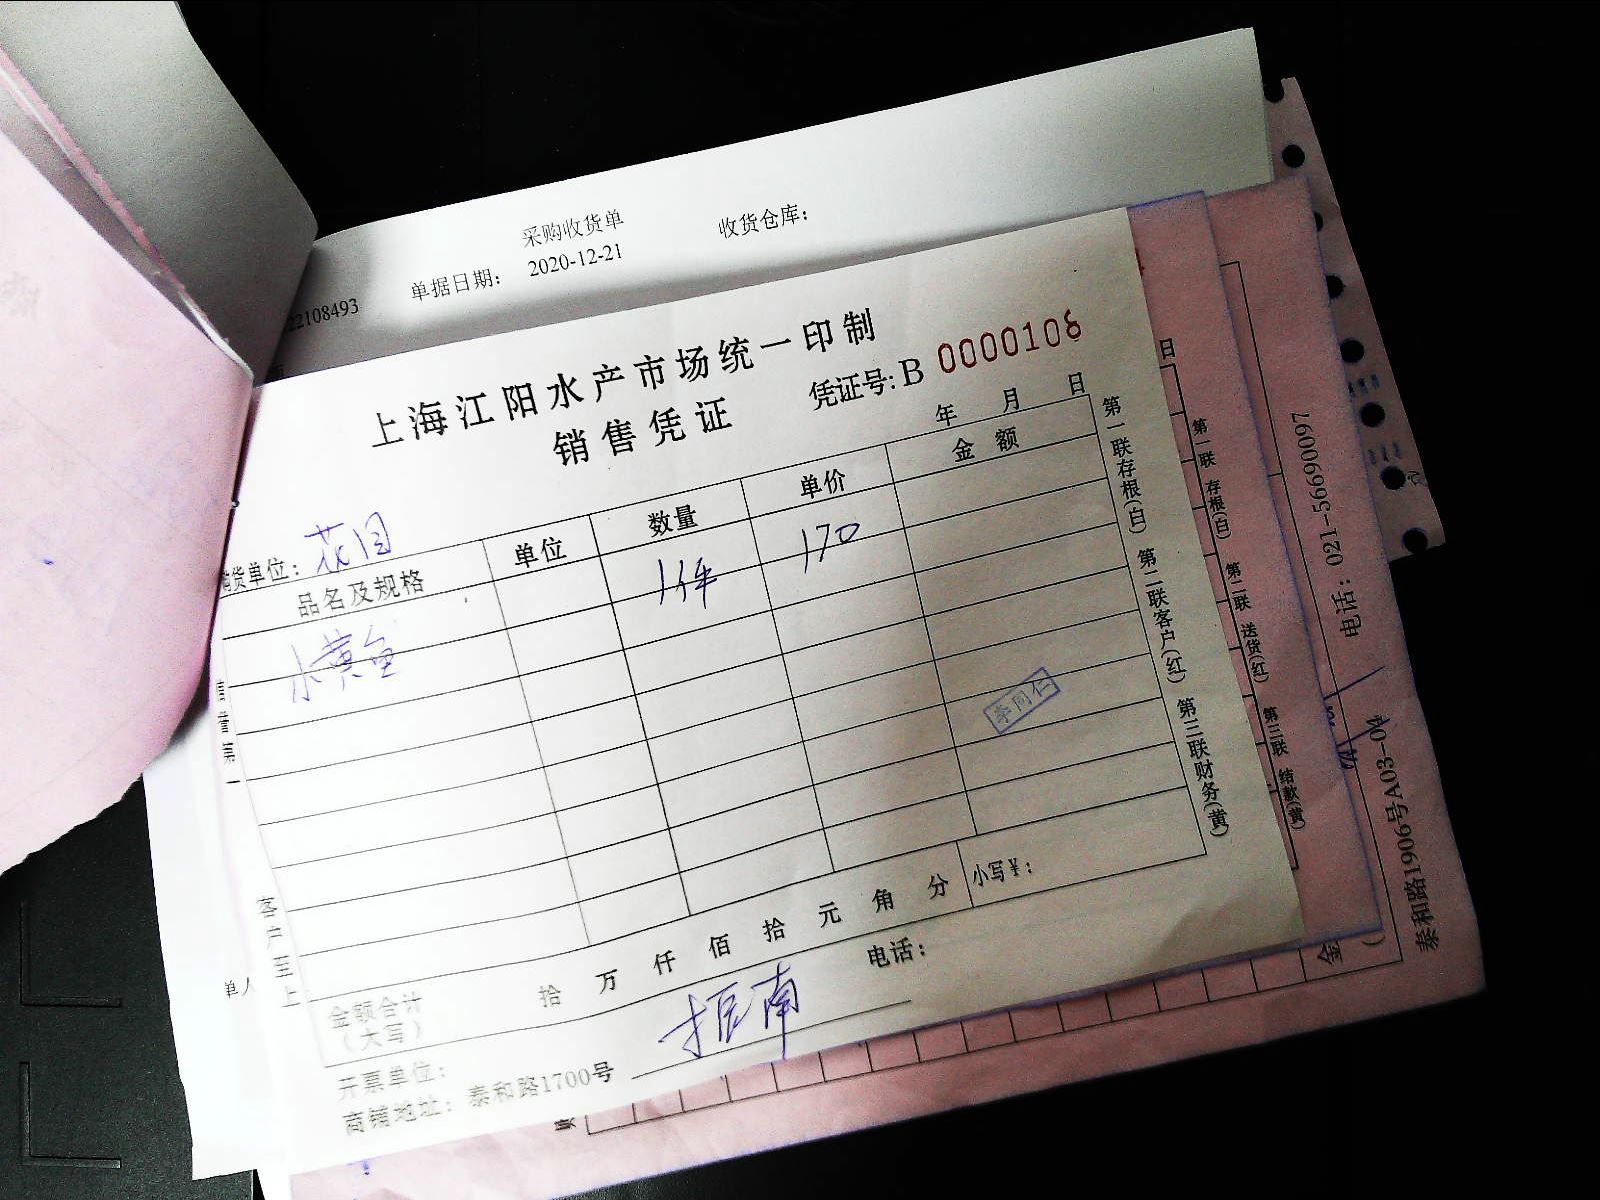 采购收货单
收货仓库：
单据日期： 2020-12-21
22108493
上海江阳水产市场统一印制
销售凭证
凭证号: B 0000108
年 月 日
销货单位： 花园
品名及规格 单位 数量 单价 金额
小黄鱼 1件 170
李同仁
信誉第一
客户至上
第一联存根(白) 第二联客户(红) 第三联财务(黄)
金额合计(大写) 拾 万 仟 佰 拾 元 角 分 小写¥：
开票单位： 振南 电话：
商铺地址：泰和路1700号
单人
日
第一联 存根(白) 第二联 送货(红) 第三联 结款(黄)
电话：021-56690097
泰和路1906号A03-04
金